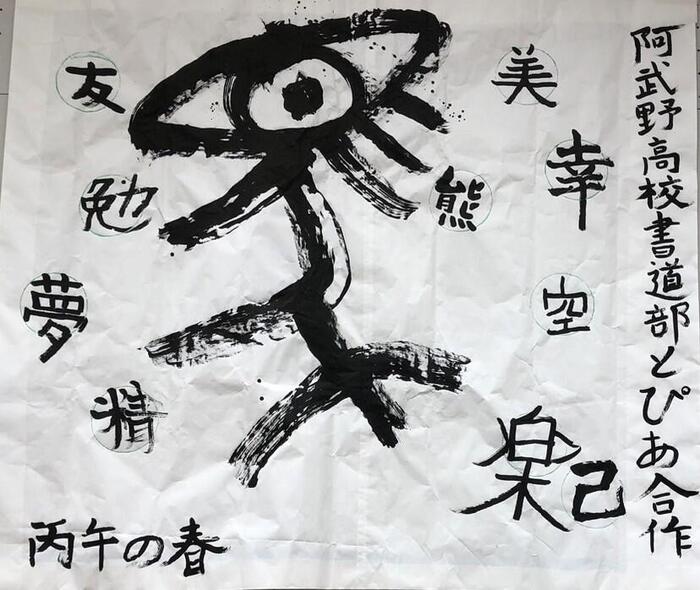 阿武野高校書道部とぴあ合作
美
幸
熊
空
楽
己
友
勉
夢
精
丙午の春